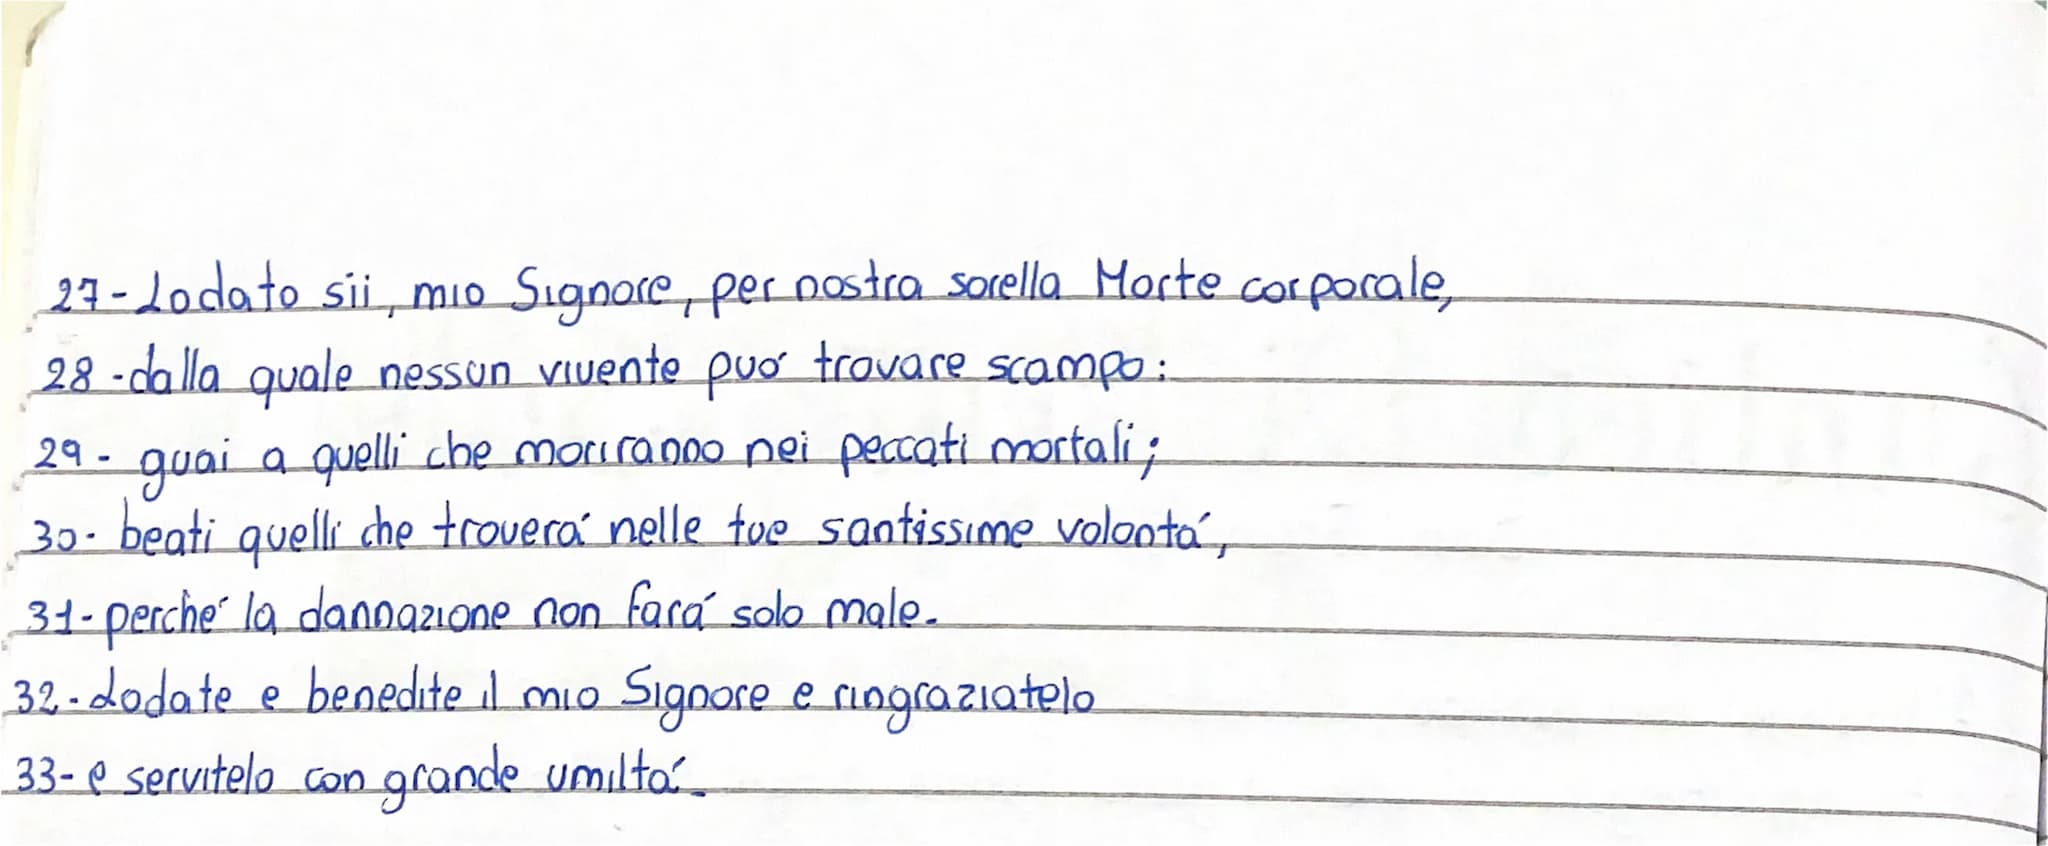 27-Lodato sii, mio Signore, per nostra sorella Morte corporale,
28-dalla quale nessun vivente puó trovare scampo:
29- guai a quelli che moriranno nei peccati mortali;
30- beati quelli che troverá nelle tue santissime volontá,
31-perché la dannazione non fará solo male.
32-Lodate e benedite il mio Signore e ringraziatelo
33-e servitelo con grande umiltá.